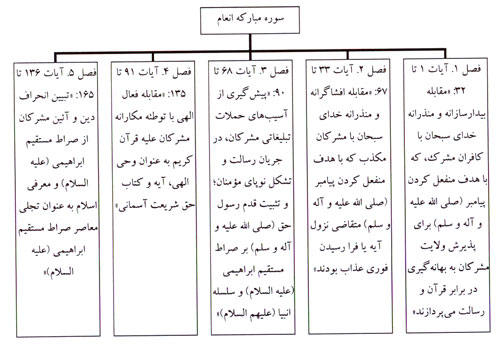 سوره مبارکه انعام
فصل ۱. آیات ۱ تا
۳۲: «مقابله
بیدارسازانه و منذرانه
خدای سبحان با
کافران مشرک، که
با هدف منفعل کردن
پیامبر (صلی الله علیه و
آله و سلم) برای
پذیرش ولایت
مشرکان به بهانه‌گیری
در برابر قرآن و
رسالت می‌پردازند»
فصل ۲. آیات ۳۳ تا
۶۷: «مقابله افشاگرانه
و منذرانه خدای
سبحان با مشرکان
مکذب که با هدف
منفعل کردن پیامبر
(صلی الله علیه و آله
و سلم) متقاضی نزول
آیه یا فرا رسیدن
فوری عذاب بودند»
فصل ۳. آیات ۶۸ تا
۹۰: «پیش‌گیری از
آسیب‌های حملات
تبلیغاتی مشرکان، در
جریان رسالت و
تشکل نوپای مؤمنان؛
و تثبیت قدم رسول
حق (صلی الله علیه و
آله و سلم) بر صراط
مستقیم ابراهیمی
(علیه السلام) و سلسله
انبیا (علیهم السلام)»
فصل ۴. آیات ۹۱ تا
۱۳۵: «مقابله فعال
الهی با توطئه مکارانه
مشرکان علیه قرآن
کریم به عنوان وحی
الهی، آیه و کتاب
حق شریعت آسمانی»
فصل ۵. آیات ۱۳۶ تا
۱۶۵: «تبیین انحراف
دین و آئین مشرکان
از صراط مستقیم
ابراهیمی (علیه
السلام) و معرفی
اسلام به عنوان تجلی
معاصر صراط مستقیم
ابراهیمی (علیه
السلام)»